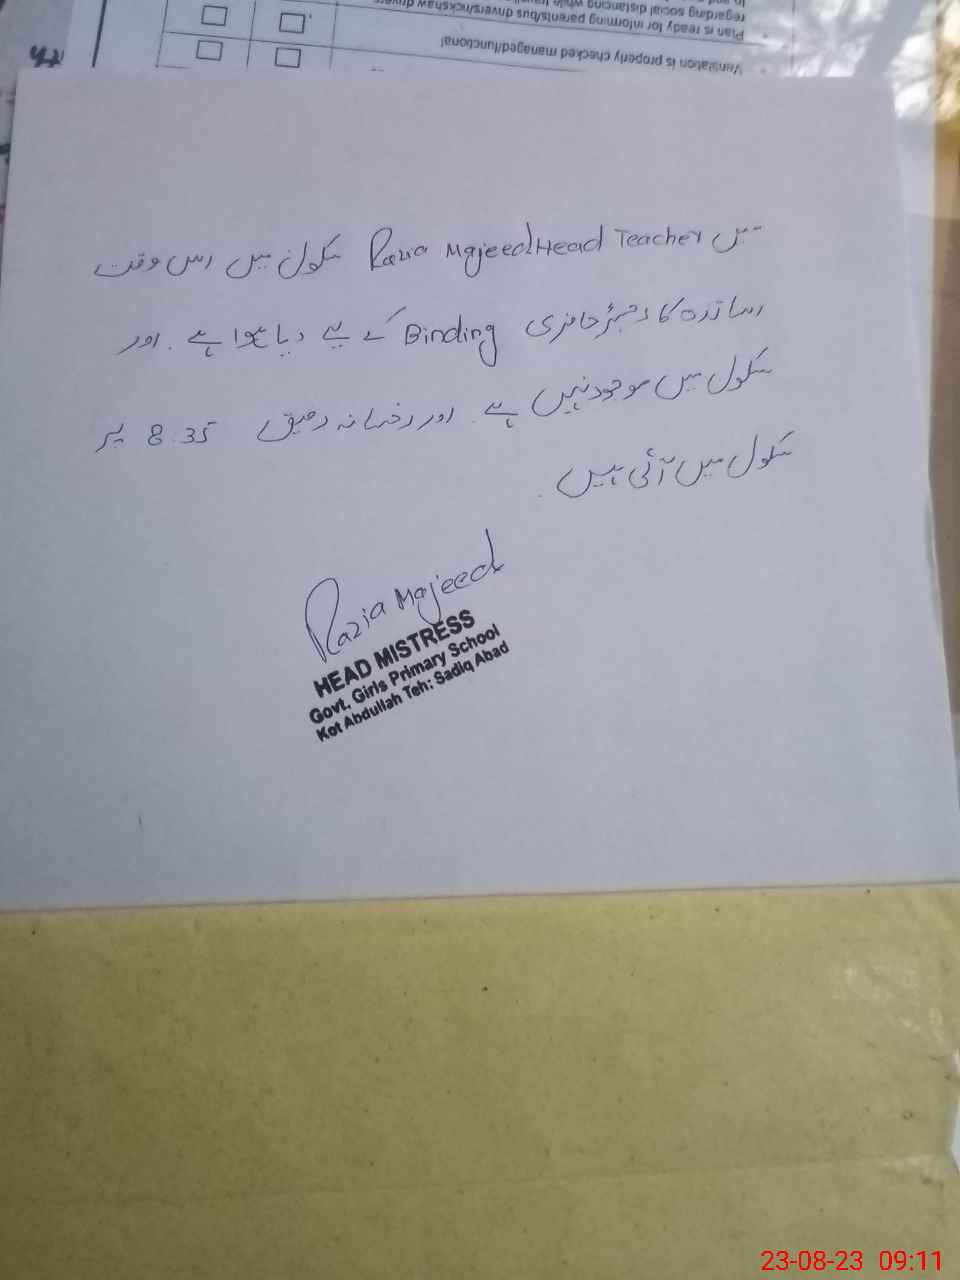 Ventilation is properly checked managed/functional
Plan is ready for informing parents/bus drivers/rickshaw drivers
regarding social distancing while
میں Razia Majeed Head Teacher سکول میں اس وقت
اساتذہ کا رجسٹر حاضری Binding کے لیے دیا ہوا ہے۔ اور
سکول میں موجود نہیں ہے۔ اور رخسانہ رفیق 8:35 پر
سکول میں آئی ہیں۔
Razia Majeed
HEAD MISTRESS
Govt. Girls Primary School
Kot Abdullah Teh: Sadiq Abad
23-08-23 09:11